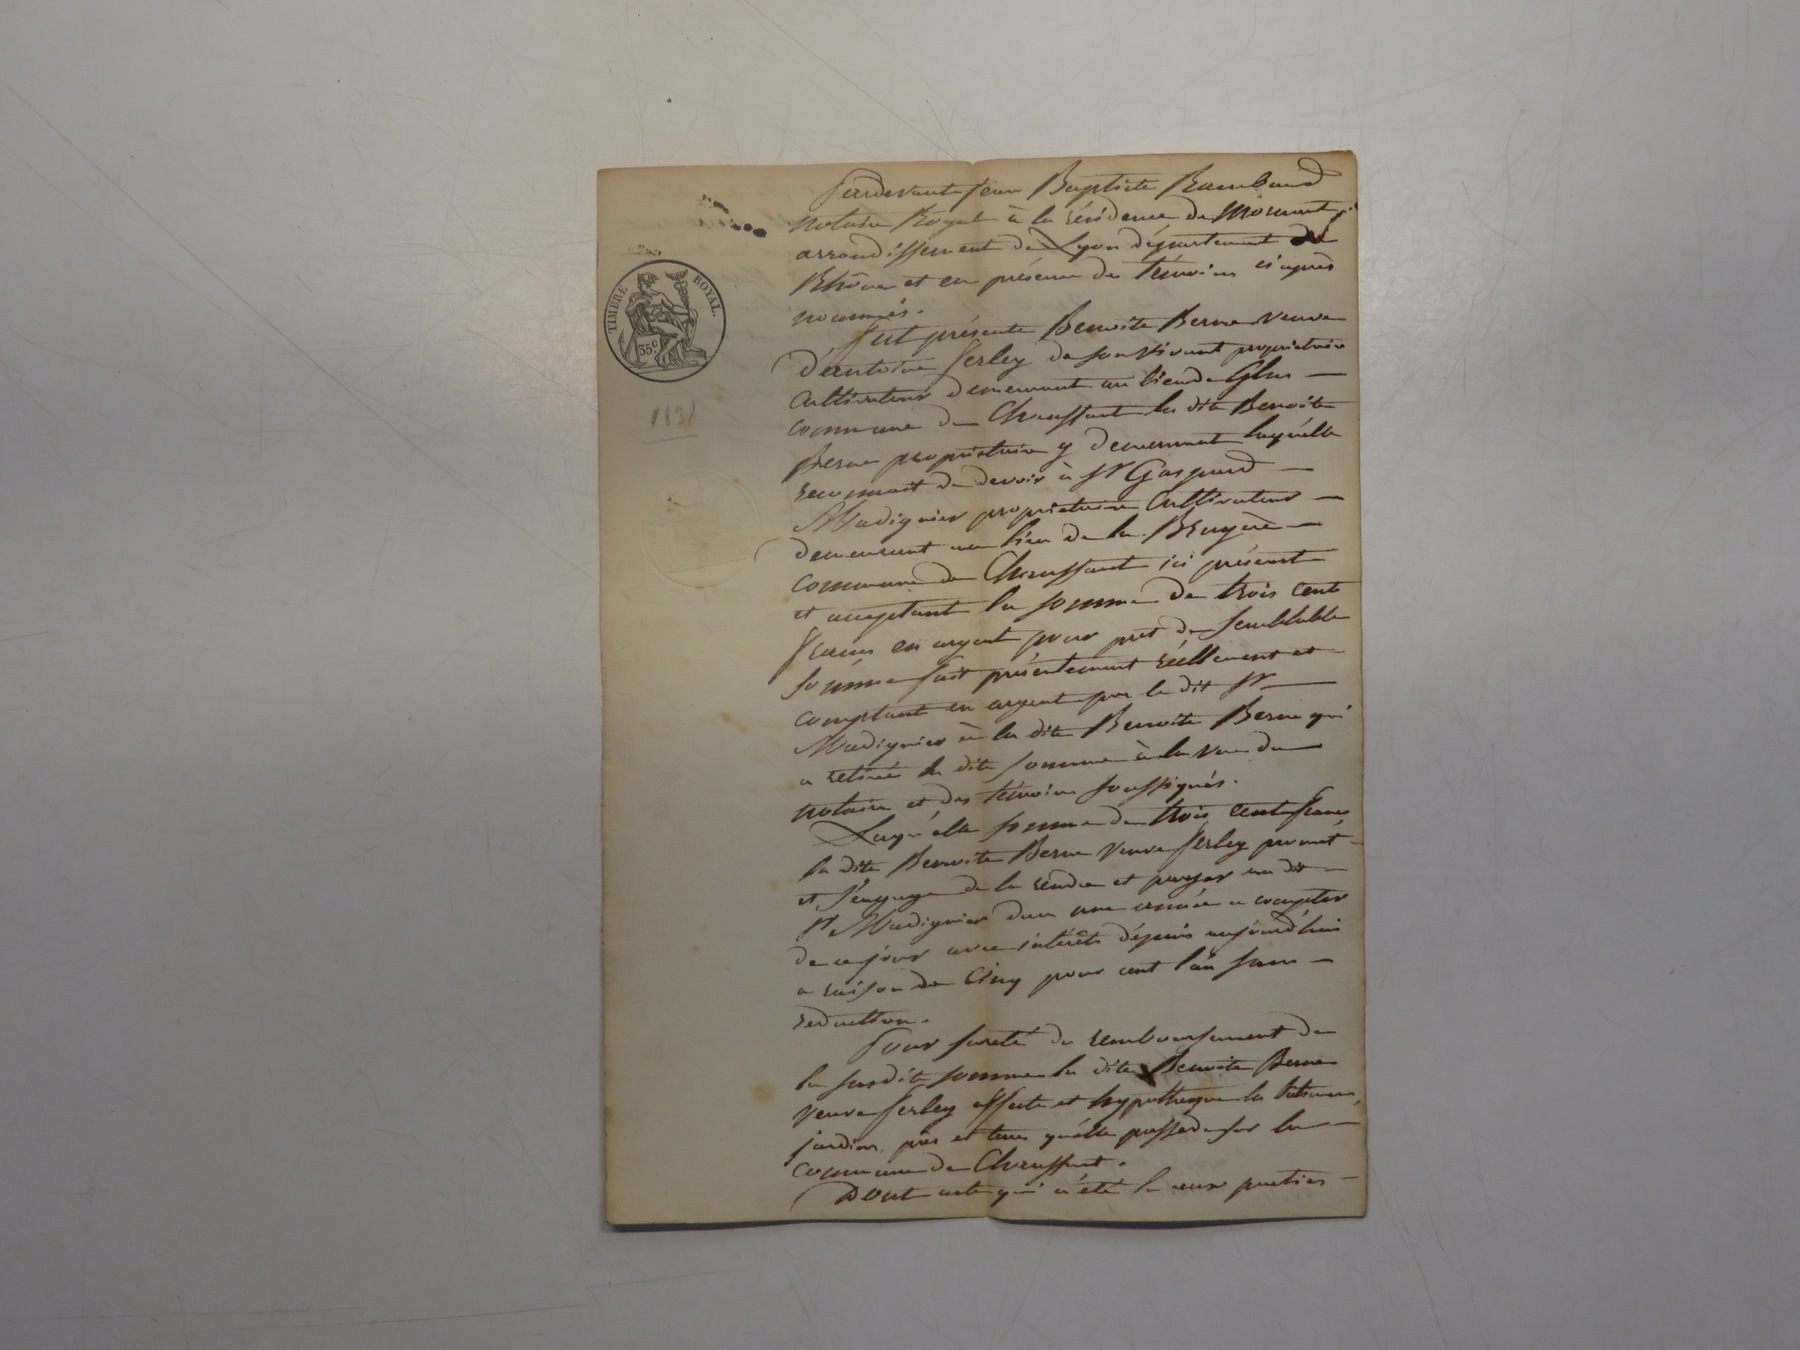 TIMBRE ROYAL.
35c
1838
Pardevant Jean Baptiste Rambaud
notaire Royal à la résidence de Mornant,
arrondissement de Lyon département du
Rhône et en présence des témoins ci après
nommés.
fut présente Benoite Berne veuve
d'antoine Ferley de son vivant propriétaire
cultivateur demeurant au lieu de
commune de Chaussant la dite Benoite
Berne propriétaire y demeurant laquelle
reconnait de devoir à Sr Gaspard
Madignier propriétaire Cultivateur
demeurant au lieu de la Bruyère
commune de Chaussant ici présent
et acceptant la somme de trois cent
francs en argent pour pret de semblable
somme fait présentement réellement et
comptant en argent par le dit Sr
Madignier à la dite Benoite Berne qui
a retirée la dite somme à la vue du
notaire et des témoins soussignés.
Laquelle somme de trois cent francs
la dite Benoite Berne veuve Ferley promet
et s'engage de la rendre et payer au dit
Sr Madignier dans une année a compter
de ce jour avec intérêts depuis aujourd'hui
a raison de Cinq pour cent l'an sans
réduction.
Pour sureté du remboursement de
la susdite somme la dite Benoite Berne
veuve Ferley affecte et hypotheque les batimens,
jardin, prés et terres quelle possede sur la
commune de Chaussant.
Dont acte qui a été lu aux parties